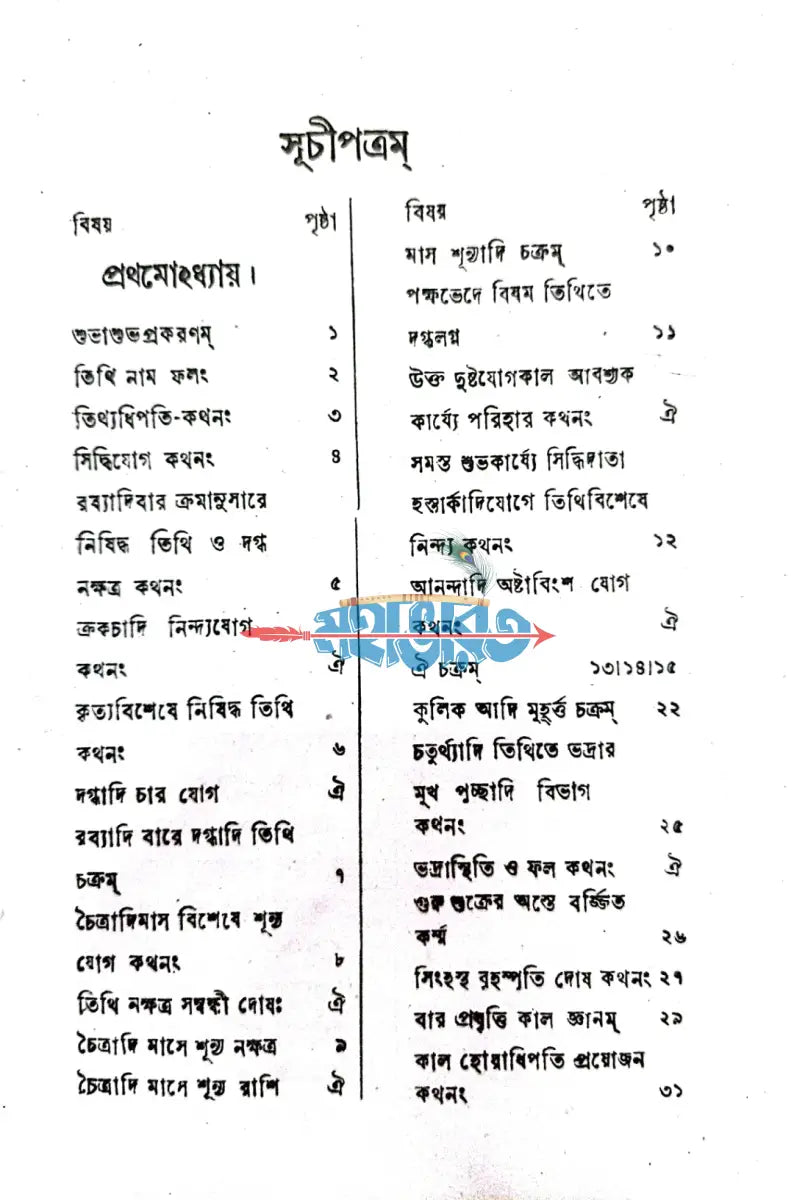 সূচীপত্রম্
বিষয় পৃষ্ঠা
প্রথমোঽধ্যায়।
শুভাশুভপ্রকরণম্ ১
তিথি নাম ফলং ২
তিথ্যধিপতি-কথনং ৩
সিদ্ধিযোগ কথনং ৪
রব্যাদিবার ক্রমানুসারে
নিষিদ্ধ তিথি ও দগ্ধ
নক্ষত্র কথনং ৫
ক্রকচাদি নিন্দ্যযোগ
কথনং ঐ
কৃত্যবিশেষে নিষিদ্ধ তিথি
কথনং ৬
দগ্ধাদি চার যোগ ঐ
রব্যাদি বারে দগ্ধাদি তিথি
চক্রম্ ৭
চৈত্রাদিমাস বিশেষে শূন্য
যোগ কথনং ৮
তিথি নক্ষত্র সম্বন্ধী দোষঃ ঐ
চৈত্রাদি মাসে শূন্য নক্ষত্র ৯
চৈত্রাদি মাসে শূন্য রাশি ঐ
বিষয় পৃষ্ঠা
মাস শূন্যাদি চক্রম্ ১০
পক্ষভেদে বিষম তিথিতে
দগ্ধলগ্ন ১১
উক্ত দুষ্টযোগকাল আবশ্যক
কার্য্যে পরিহার কথনং ঐ
সমস্ত শুভকার্য্যে সিদ্ধিদাতা
হস্তার্কাদিযোগে তিথিবিশেষে
নিন্দ্য কথনং ১২
আনন্দাদি অষ্টাবিংশ যোগ
কথনং ঐ
মহাভারত
ঐ চক্রম্ ১৩।১৪।১৫
কুলিক আদি মূহূর্ত্ত চক্রম্ ২২
চতুর্থ্যাদি তিথিতে ভদ্রার
মূখ পুচ্ছাদি বিভাগ
কথনং ২৫
ভদ্রাস্থিতি ও ফল কথনং ঐ
গুরু শুক্রের অস্তে বর্জ্জিত
কর্ম্ম ২৬
সিংহস্থ বৃহস্পতি দোষ কথনং ২৭
বার প্রবৃত্তি কাল জ্ঞানম্ ২৯
কাল হোরাধিপতি প্রয়োজন
কথনং ৩১